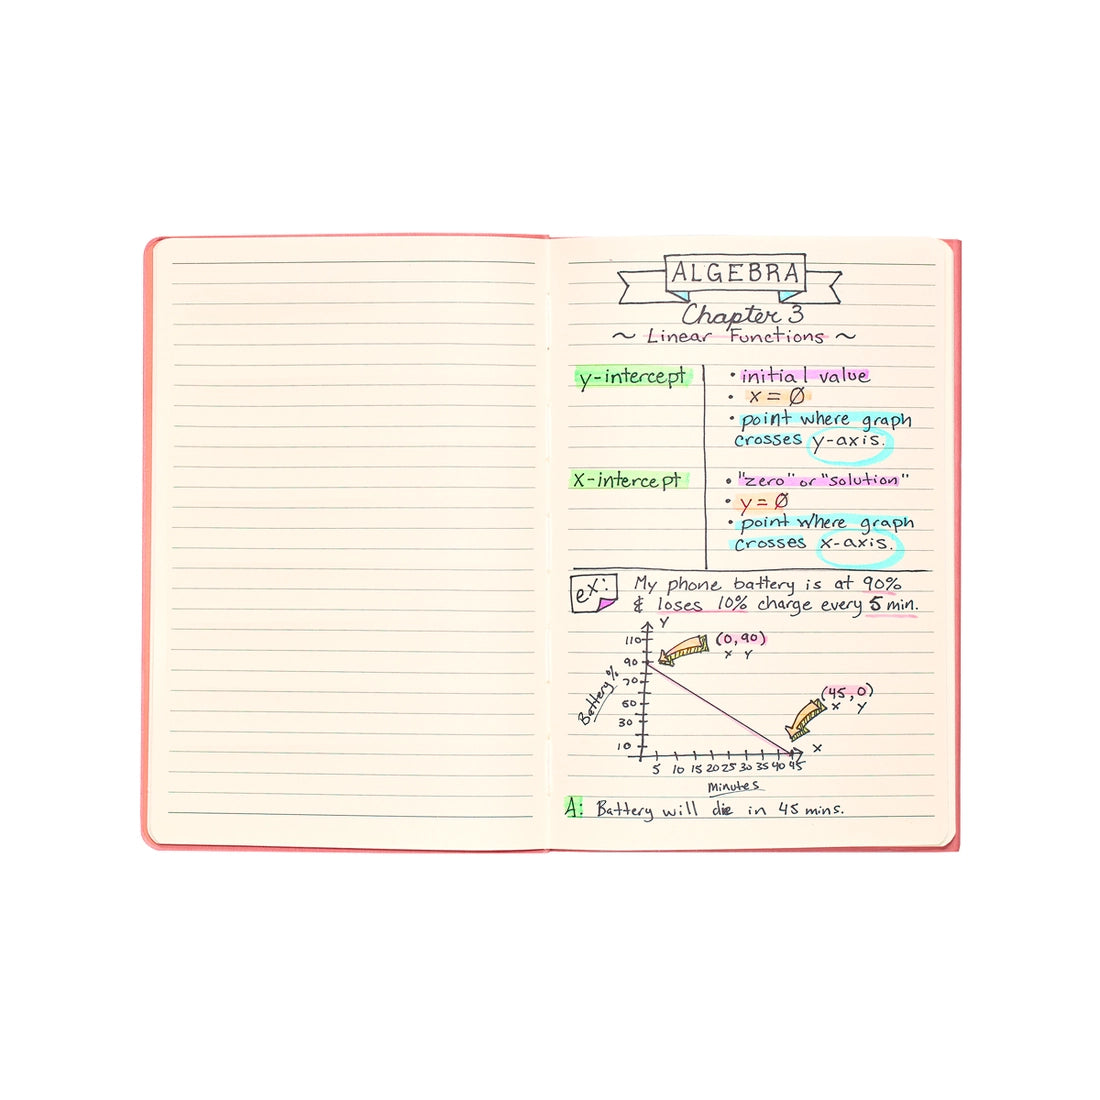 ALGEBRA
Chapter 3
~ Linear Functions ~
y-intercept
• initial value
• x = Ø
• point where graph
crosses y-axis.
x-intercept
• "zero" or "solution"
• y = Ø
• point where graph
crosses x-axis.
ex: My phone battery is at 90%
& loses 10% charge every 5 min.
Y
110
(0,90)
X Y
90
70
50
30
10
Battery %
(45,0)
X Y
X
5 10 15 20 25 30 35 40 45
Minutes
A: Battery will die in 45 mins.